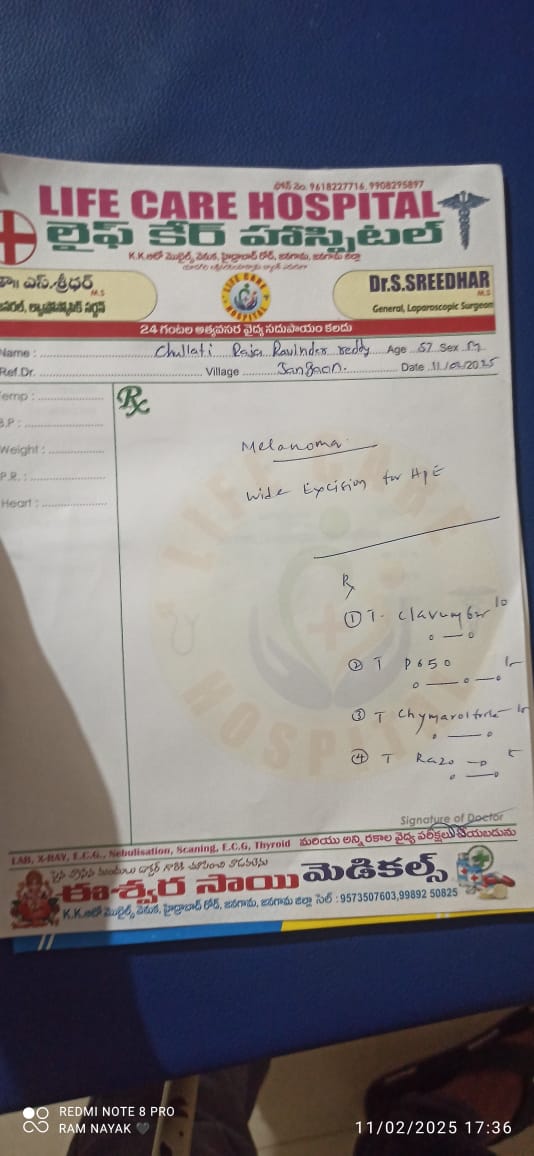 ఫోన్ నెం. 9618227716, 9908295897
LIFE CARE HOSPITAL
లైఫ్ కేర్ హాస్పిటల్
K.K.ఆటో మొబైల్స్ వెనుక, హైద్రాబాద్ రోడ్, జనగామ, జనగామ జిల్లా
డా॥ ఎస్.శ్రీధర్
M.S
జనరల్, ల్యాప్రోస్కోపిక్ సర్జన్
LIFE CARE
HOSPITAL
Dr.S.SREEDHAR
M.S
General, Laparoscopic Surgeon
24 గంటల అత్యవసర వైద్య సదుపాయం కలదు
Name : Challati Raja Ravinder reddy Age 57 Sex M
Ref.Dr. Village Jangaon. Date 11/02/2025
Temp :
B.P :
Weight :
P.R. :
Heart :
Rx
LIFE CARE
HOSPITAL
Melanoma
Wide Excision for HPE
Rx
① T. Clavum 625 10
o — o
② T P650
o — o — o
③ T Chymoral forte
o — o
④ T Razo
o — o
Signature of Doctor
LAB, X-RAY, E.C.G., Nebulisation, Scaning, E.C.G, Thyroid మరియు అన్ని రకాల వైద్య పరీక్షలు చేయబడును
ఈశ్వర సాయి మెడికల్స్
K.K.ఆటో మొబైల్స్ వెనుక, హైద్రాబాద్ రోడ్, జనగామ, జనగామ జిల్లా సెల్ : 9573507603,99892 50825
REDMI NOTE 8 PRO
RAM NAYAK
11/02/2025 17:36